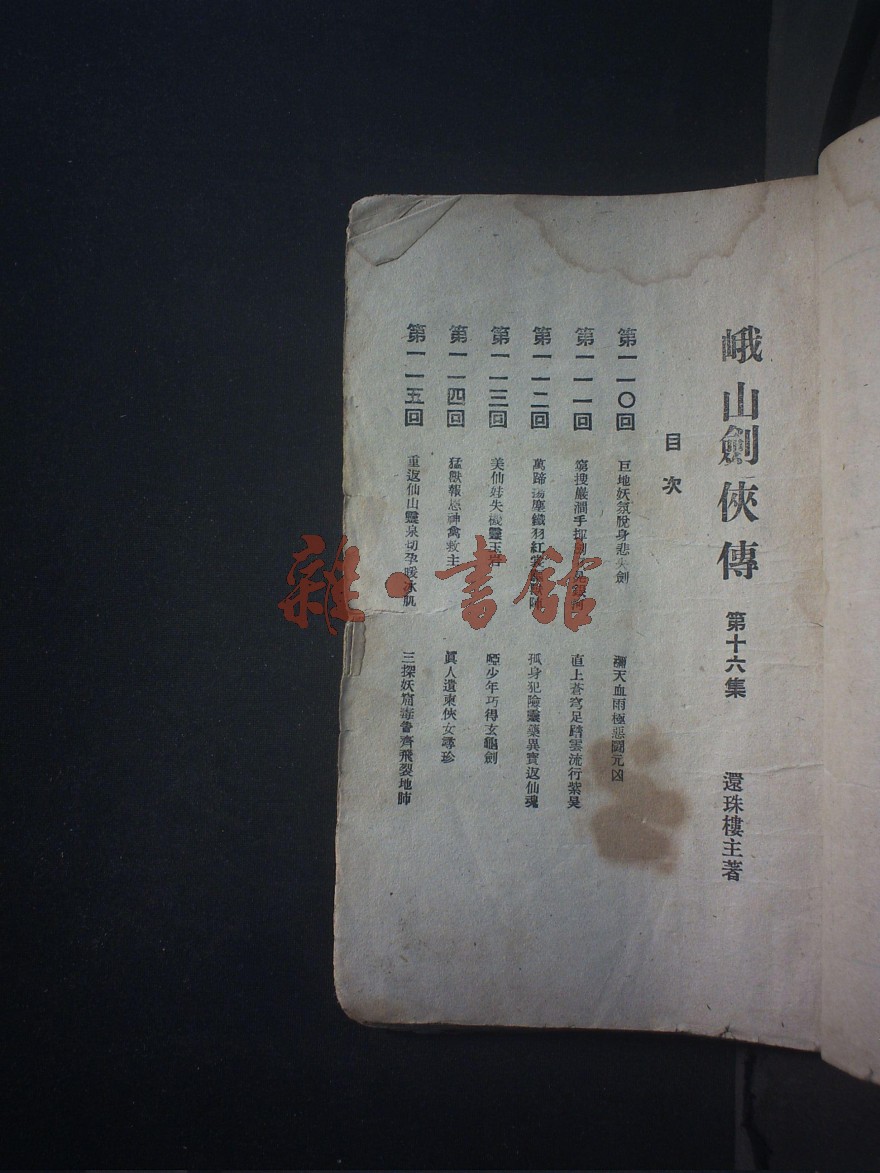 峨山劍俠傳 第十六集 還珠樓主著
目次
第一一〇回 巨地妖氛脫身悲失劍 瀰天血雨極惡鬭元凶
第一一一回 窮搜巖澗手揮劍 銀河 直上蒼穹足踏雲流行紫昊
第一一二回 萬蹄揚塵鐵羽紅裳 孤身犯險靈藥異寶返仙魂
第一一三回 美仙娃失機靈玉岩 啞少年巧得玄龜劍
第一一四回 猛獸報恩神禽救主 眞人遺柬俠女尋珍
第一一五回 重返仙山靈泉初孕暖冰肌 三探妖窟毒魯齊飛裂地肺
雜·書館